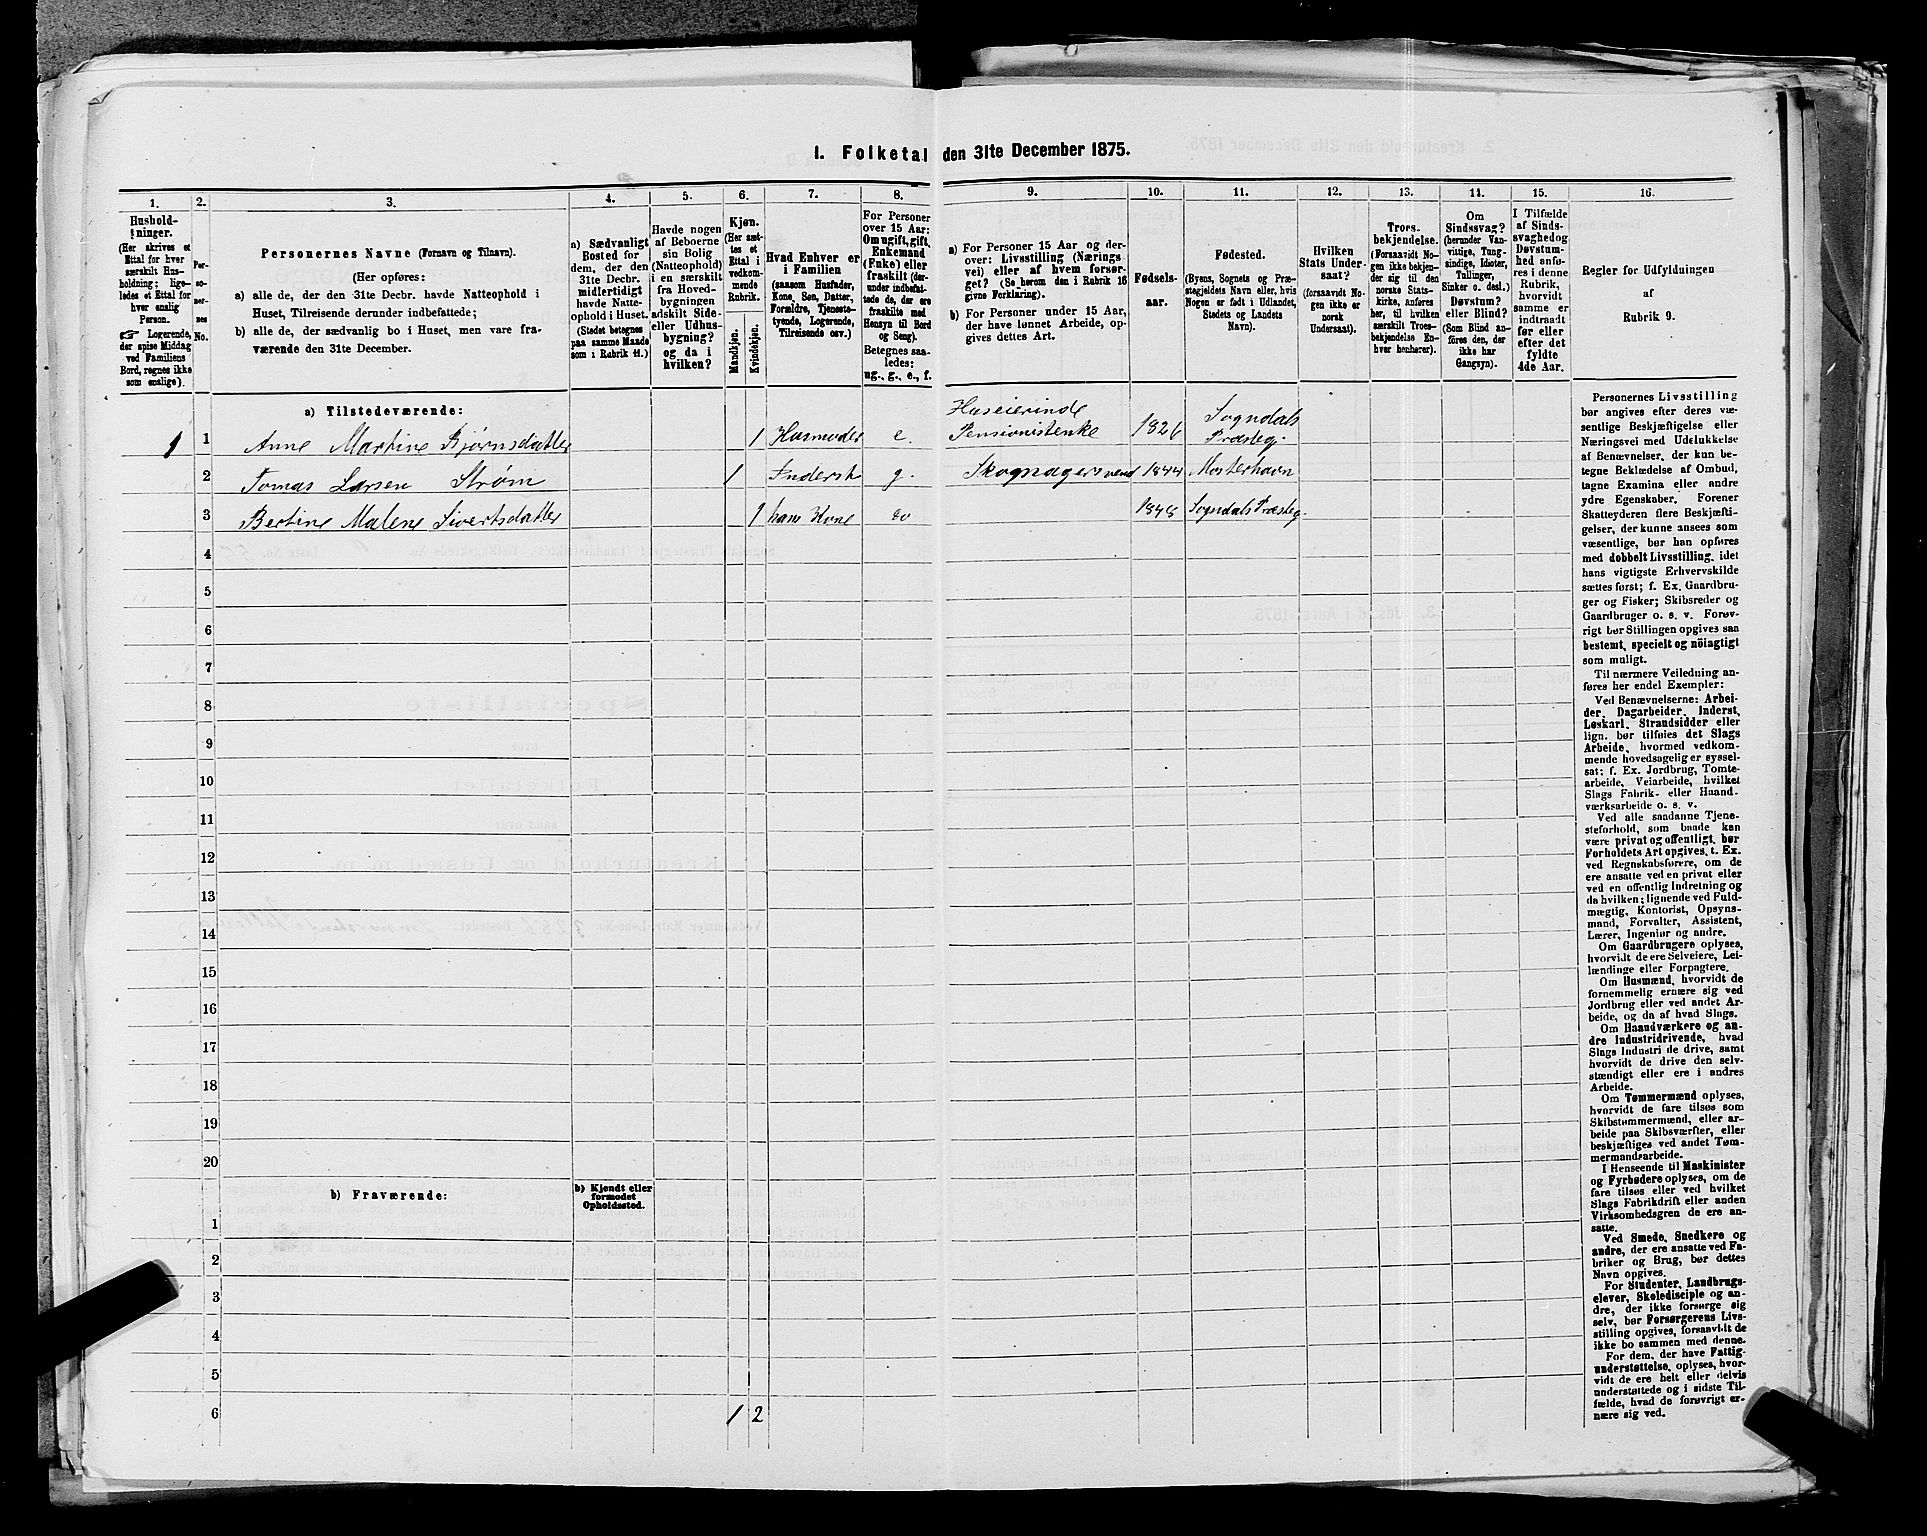 I. Folketal den 31te December 1875.
1.
Hushold-
ninger.
(Her skrives et
Ettal for hver
særskilt Hus-
holdning; lige-
ledes et Ettal for
hver enslig
Person.
☞ Logerende,
der spise Middag
ved Familiens
Bord, regnes ikke
som enslige).
2.
Per-
so-
ner-
nes
No.
3.
Personernes Navne (Fornavn og Tilnavn).
(Her opføres:
a) alle de, der den 31te Decbr. havde Natteophold i
Huset, Tilreisende derunder indbefattede;
b) alle de, der sædvanlig bo i Huset, men vare fra-
værende den 31te December.
4.
a) Sædvanligt
Bosted for
dem, der den
31te Decbr.
midlertidigt
havde Natte-
ophold i Huset.
(Stedet betegnes
paa samme Maade
som i Rubrik 11.)
5.
Havde nogen
af Beboerne
sin Bolig
(Natteophold)
i en særskilt
fra Hoved-
bygningen
adskilt Side-
eller Udhus-
bygning?
og da i
hvilken?
6.
Kjøn.
(Her sæt-
tes et
Ettal i
vedkom-
mende
Rubrik.
Mandkjøn.
Kvindekjøn.
7.
Hvad Enhver er
i Familien
(saasom Husfader,
Kone, Søn, Datter,
Forældre, Tjeneste-
tyende, Logerende,
Tilreisende osv.)
8.
For Personer
over 15 Aar:
Om ugift, gift,
Enkemand
(Enke) eller
fraskilt (der-
under indbefat-
tede de, der ere
fraskilte med
Hensyn til Bord
og Seng).
Betegnes saa-
ledes:
ug., g., e., f.
9.
a) For Personer 15 Aar og der-
over: Livsstilling (Nærings-
vei) eller af hvem forsør-
get? (Se herom den i Rubrik 16
givne Forklaring).
b) For Personer under 15 Aar,
der have lønnet Arbeide, op-
gives dettes Art.
10.
Fødsels-
aar.
11.
Fødested.
(Byens, Sognets og Præ-
stegjeldets Navn eller, hvis
Nogen er født i Udlandet,
Stedets og Landets
Navn).
12.
Hvilken
Stats Under-
saat?
(forsaavidt No-
gen ikke er
norsk
Undersaat).
13.
Troes-
bekjendelse.
(Forsaavidt No-
gen ikke bekjen-
der sig til den
norske Stats-
kirke, anføres
her, til hvilken
særskilt Troes-
bekjendelse En-
hver henhører).
14.
Om
Sindssvag?
(herunder Van-
vittige, Tung-
sindige, Idioter,
Tullinger,
Sinker o. desl.)
Døvstum?
eller Blind?
(Som Blind an-
føres den, der
ikke har
Gangsyn).
15.
I Tilfælde
af Sinds-
svaghed og
Døvstum-
hed anfø-
res i denne
Rubrik,
hvorvidt
samme er
indtraadt
før eller
efter det
fyldte
4de Aar.
16.
Regler for Udfyldningen
af
Rubrik 9.
a) Tilstedeværende:
1 1 Anne Martine Bjørnsdatter 1 Husmoder e. Huseierinde Pensionistenke 1826 Sogndals Præsteg.
2 Tomas Larsen Strøm 1 Inderst g. 1844 Mosterhavn
3 Bertine Malene Sivertsdatter 1 hans Kone do 1848 Sogndals Præsteg.
4
5
6
7
8
9
10
11
12
13
14
15
16
17
18
19
20
b) Fraværende:
b) Kjendt eller
formodet
Opholdssted.
1
2
3
4
5
6
1 2
Personernes Livsstilling
bør angives efter deres væ-
sentlige Beskjæftigelse eller
Næringsvei med Udelukkelse
af Benævnelser, der kun be-
tegne Beklædelse af Ombud,
tagne Examina eller andre
ydre Egenskaber. Forener
Skatteyderen flere Beskjæfti-
gelser, der kunne ansees som
væsentlige, bør han opføres
med dobbelt Livsstilling, idet
hans vigtigste Erhvervskilde
sættes først; f. Ex. Gaardbru-
ger og Fisker; Skibsreder og
Gaardbruger o. s. v. Forøv-
rigt bør Stillingen opgives saa
bestemt, specielt og nöiagtigt
som muligt.
Til nærmere Veiledning an-
føres her endel Exempler:
Ved Benævnelserne: Arbei-
der, Dagarbeider, Inderst,
Løskarl, Strandsidder eller
lign. bør tilføies det Slags
Arbeide, hvormed vedkom-
mende hovedsagelig er syssel-
sat; f. Ex. Jordbrug, Tomte-
arbeide, Veiarbeide, hvilket
Slags Fabrik- eller Haand-
værksarbeide o. s. v.
Ved alle saadanne Tjene-
steforhold, som baade kan
være privat og offentligt, bør
Forholdets Art opgives, t. Ex.
ved Regnskabsførere, om de
ere ansatte ved en privat eller
ved en offentlig Indretning og
da hvilken; lignende ved Fuld-
mægtig, Kontorist, Opsyns-
mand, Forvalter, Assistent,
Lærer, Ingeniør og andre.
Om Gaardbrugere oplyses,
hvorvidt de ere Selveiere, Lei-
lændinge eller Forpagtere.
Om Husmænd, hvorvidt de
fornemmelig ernære sig ved
Jordbrug eller ved andet Ar-
beide, og da af hvad Slags.
Om Haandværkere og an-
dre Industridrivende, hvad
Slags Industri de drive, samt
hvorvidt de drive den selv-
stændigt eller ere i andres
Arbeide.
Om Tømmermænd oplyses,
hvorvidt de fare tilsøs som
Skibstømmermænd, eller ar-
beide paa Skibsværfter, eller
beskjæftiges ved andet Tøm-
mermandsarbeide.
I Henseende til Maskinister
og Fyrbødere oplyses, om de
fare tilsøs eller ved hvilket
Slags Fabrikdrift eller anden
Virksomhedsgren de ere an-
satte.
Ved Smede, Snedkere og
andre, der ere ansatte ved Fa-
briker og Brug, bør dettes
Navn opgives.
For Studenter, Landbrugs-
elever, Skoledisciple og an-
dre, der ikke forsørge sig
selv, bør Forsørgerens Livs-
stilling opgives, forsaavidt de
ikke bo sammen med denne.
For dem, der have Fattig-
understøttelse, oplyses, hvor-
vidt de ere helt eller delvis
understøttede og i sidste Til-
fælde, hvad de forøvrigt er-
nære sig ved.